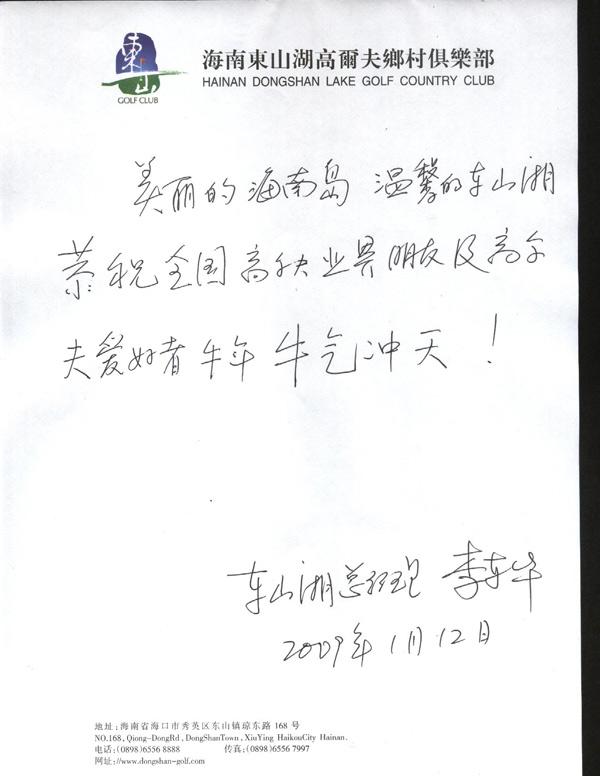 東山
GOLF CLUB
海南東山湖高爾夫鄉村俱樂部
HAINAN DONGSHAN LAKE GOLF COUNTRY CLUB
美丽的海南岛 温馨的东山湖
恭祝全国高尔夫业界朋友及高尔
夫爱好者 牛年 牛气冲天！
东山湖总经理
2009年1月12日
地址:海南省海口市秀英区东山镇琼东路 168 号
NO.168, Qiong-DongRd, DongShanTown, XiuYing HaikouCity Hainan.
电话:(0898)6556 8888 传真:(0898)6556 7997
网址://www.dongshan-golf.com